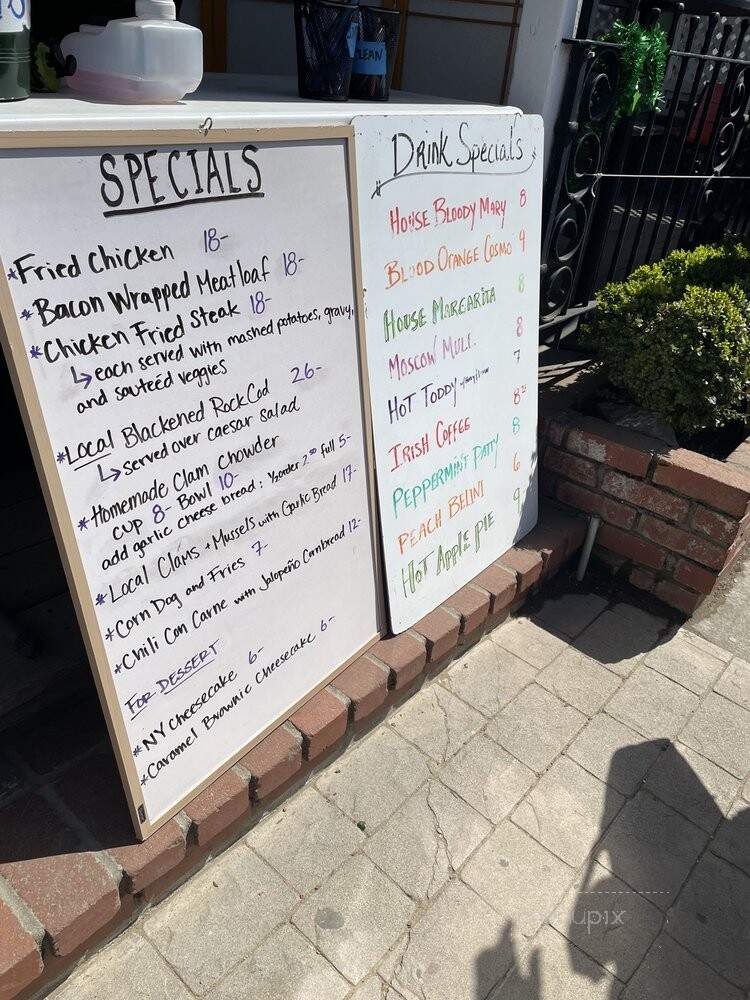 CLEAN
SPECIALS
*Fried Chicken 18-
*Bacon Wrapped Meatloaf 18-
*Chicken Fried Steak 18-
↳ each served with mashed potatoes, gravy,
and sauteéd veggies
*Local Blackened Rock Cod 26-
↳ served over caesar salad
*Homemade Clam Chowder
cup 8- Bowl 10-
add garlic cheese bread: ½ order 2.50 full 5-
*Local Clams + Mussels with Garlic Bread 17-
*Corn Dog and Fries 7-
*Chili Con Carne with Jalapeño Cornbread 12-
FOR DESSERT
*NY Cheesecake 6-
*Caramel Brownie Cheesecake 6-
Drink Specials
House Bloody Mary 8
Blood Orange Cosmo 9
House Margarita 8
Moscow Mule 8
Hot Toddy 7
Irish Coffee 8
Peppermint Patty 8
Peach Belini 6
Hot Apple Pie 9